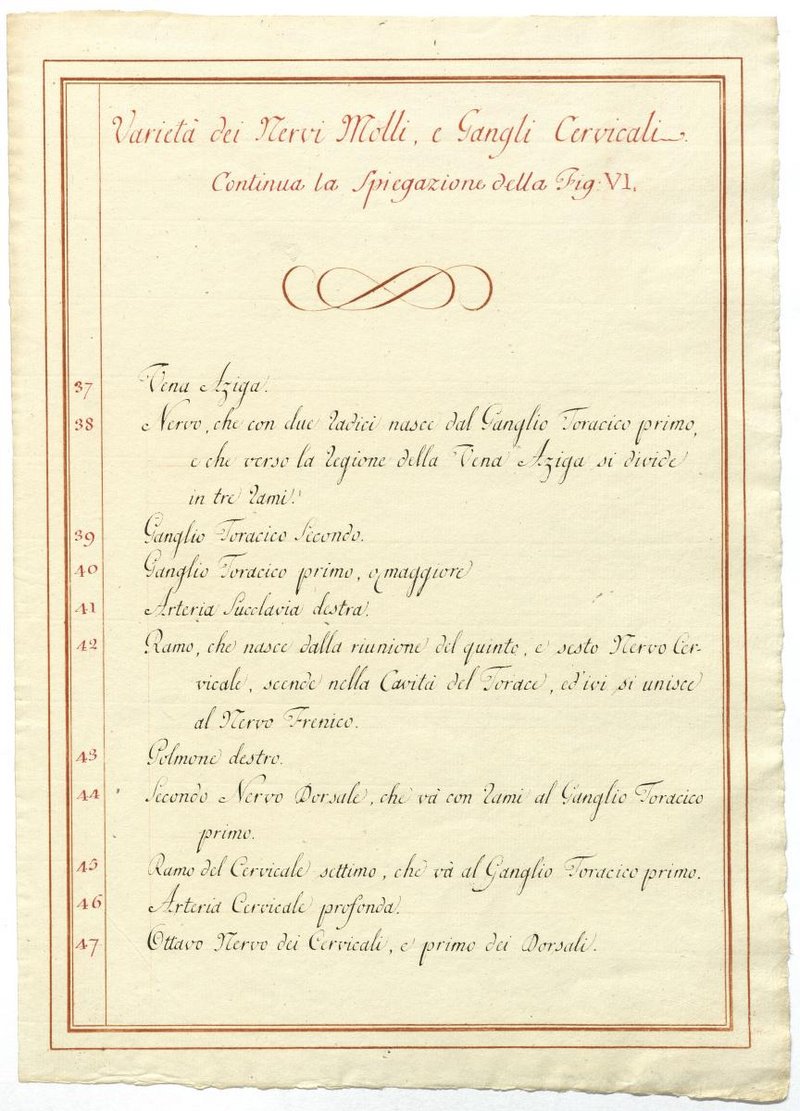 Varietà dei Nervi Molli, e Gangli Cervicali.
Continua la Spiegazione della Fig: VI.
37 Vena Aziga.
38 Nervo, che con due radici nasce dal Ganglio Toracico primo,
e che verso la regione della Vena Aziga si divide
in tre rami.
39 Ganglio Toracico Secondo.
40 Ganglio Toracico primo, o maggiore
41 Arteria Succlavia destra.
42 Ramo, che nasce dalla riunione del quinto, e sesto Nervo Cer-
vicale, scende nella Cavità del Torace, ed'ivi si unisce
al Nervo Frenico.
43 Polmone destro.
44 Secondo Nervo Dorsale, che và con rami al Ganglio Toracico
primo.
45 Ramo del Cervicale settimo, che và al Ganglio Toracico primo.
46 Arteria Cervicale profonda.
47 Ottavo Nervo dei Cervicali, e primo dei Dorsali.